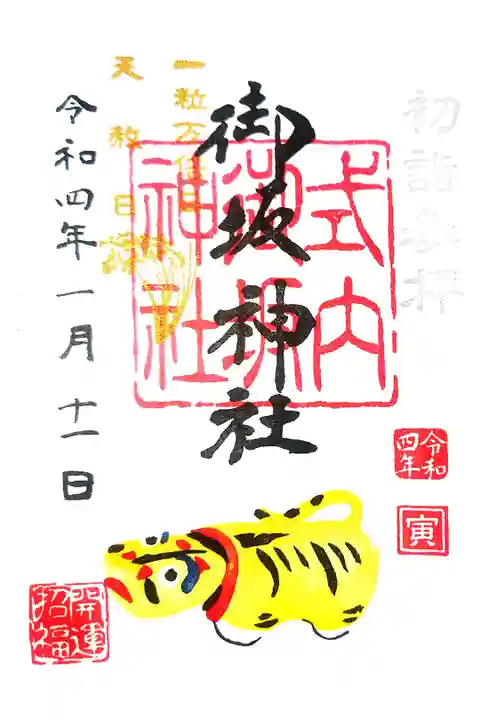 初詣参拝
令和
四年
寅
式内
御坂
神社
御坂神社
一粒万倍日
天赦日
令和四年一月十一日
開運
招福